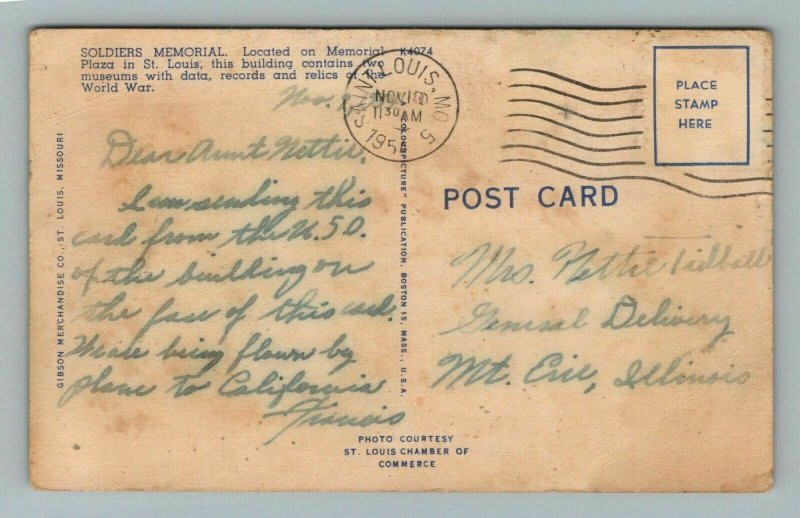 SOLDIERS MEMORIAL. Located on Memorial
Plaza in St. Louis, this building contains two
museums with data, records and relics of the
World War.
K4074
SAINT LOUIS, MO.
NOV 18
11 30 AM
195
5
PLACE
STAMP
HERE
POST CARD
GIBSON MERCHANDISE CO., ST. LOUIS, MISSOURI
"COLORPICTURE" PUBLICATION, BOSTON 15, MASS., U.S.A.
Nov.
Dear Aunt Nettie,
I am sending this
card from the U.S.O.
of the building on
the face of this card.
We are being flown by
plane to California
Francis
Mrs. Nettie Tidball
General Delivery
Mt. Erie, Illinois
PHOTO COURTESY
ST. LOUIS CHAMBER OF
COMMERCE